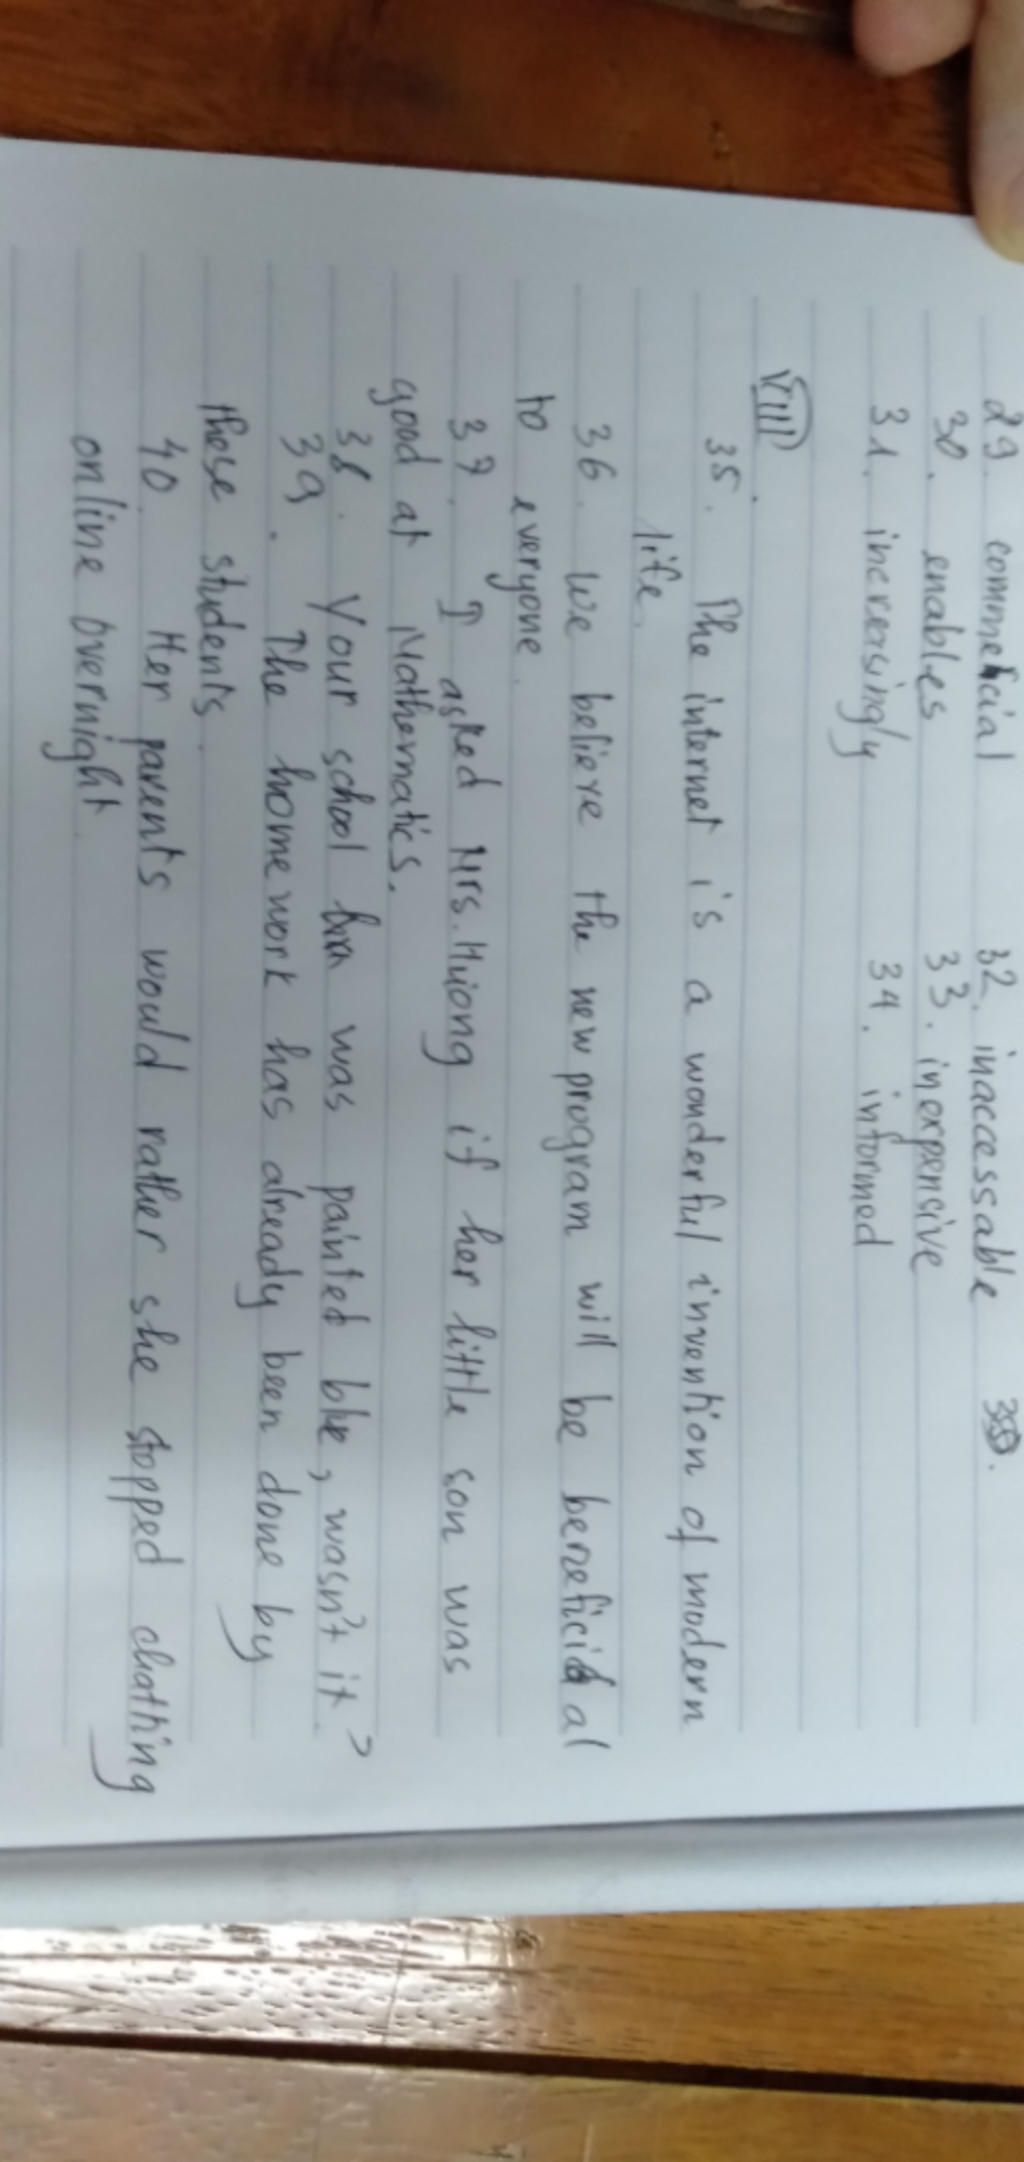 29. commercial 32. inaccessable 35.
30. enables 33. inexpensive
31. increasingly 34. informed
VIII.
35. The internet is a wonderful invention of modern
life.
36. We believe the new program will be beneficial
to everyone.
37. I asked Mrs. Huong if her little son was
good at Mathematics.
38. Your school was painted blue, wasn't it?
39. The homework has already been done by
these students.
40. Her parents would rather she stopped chatting
online overnight.